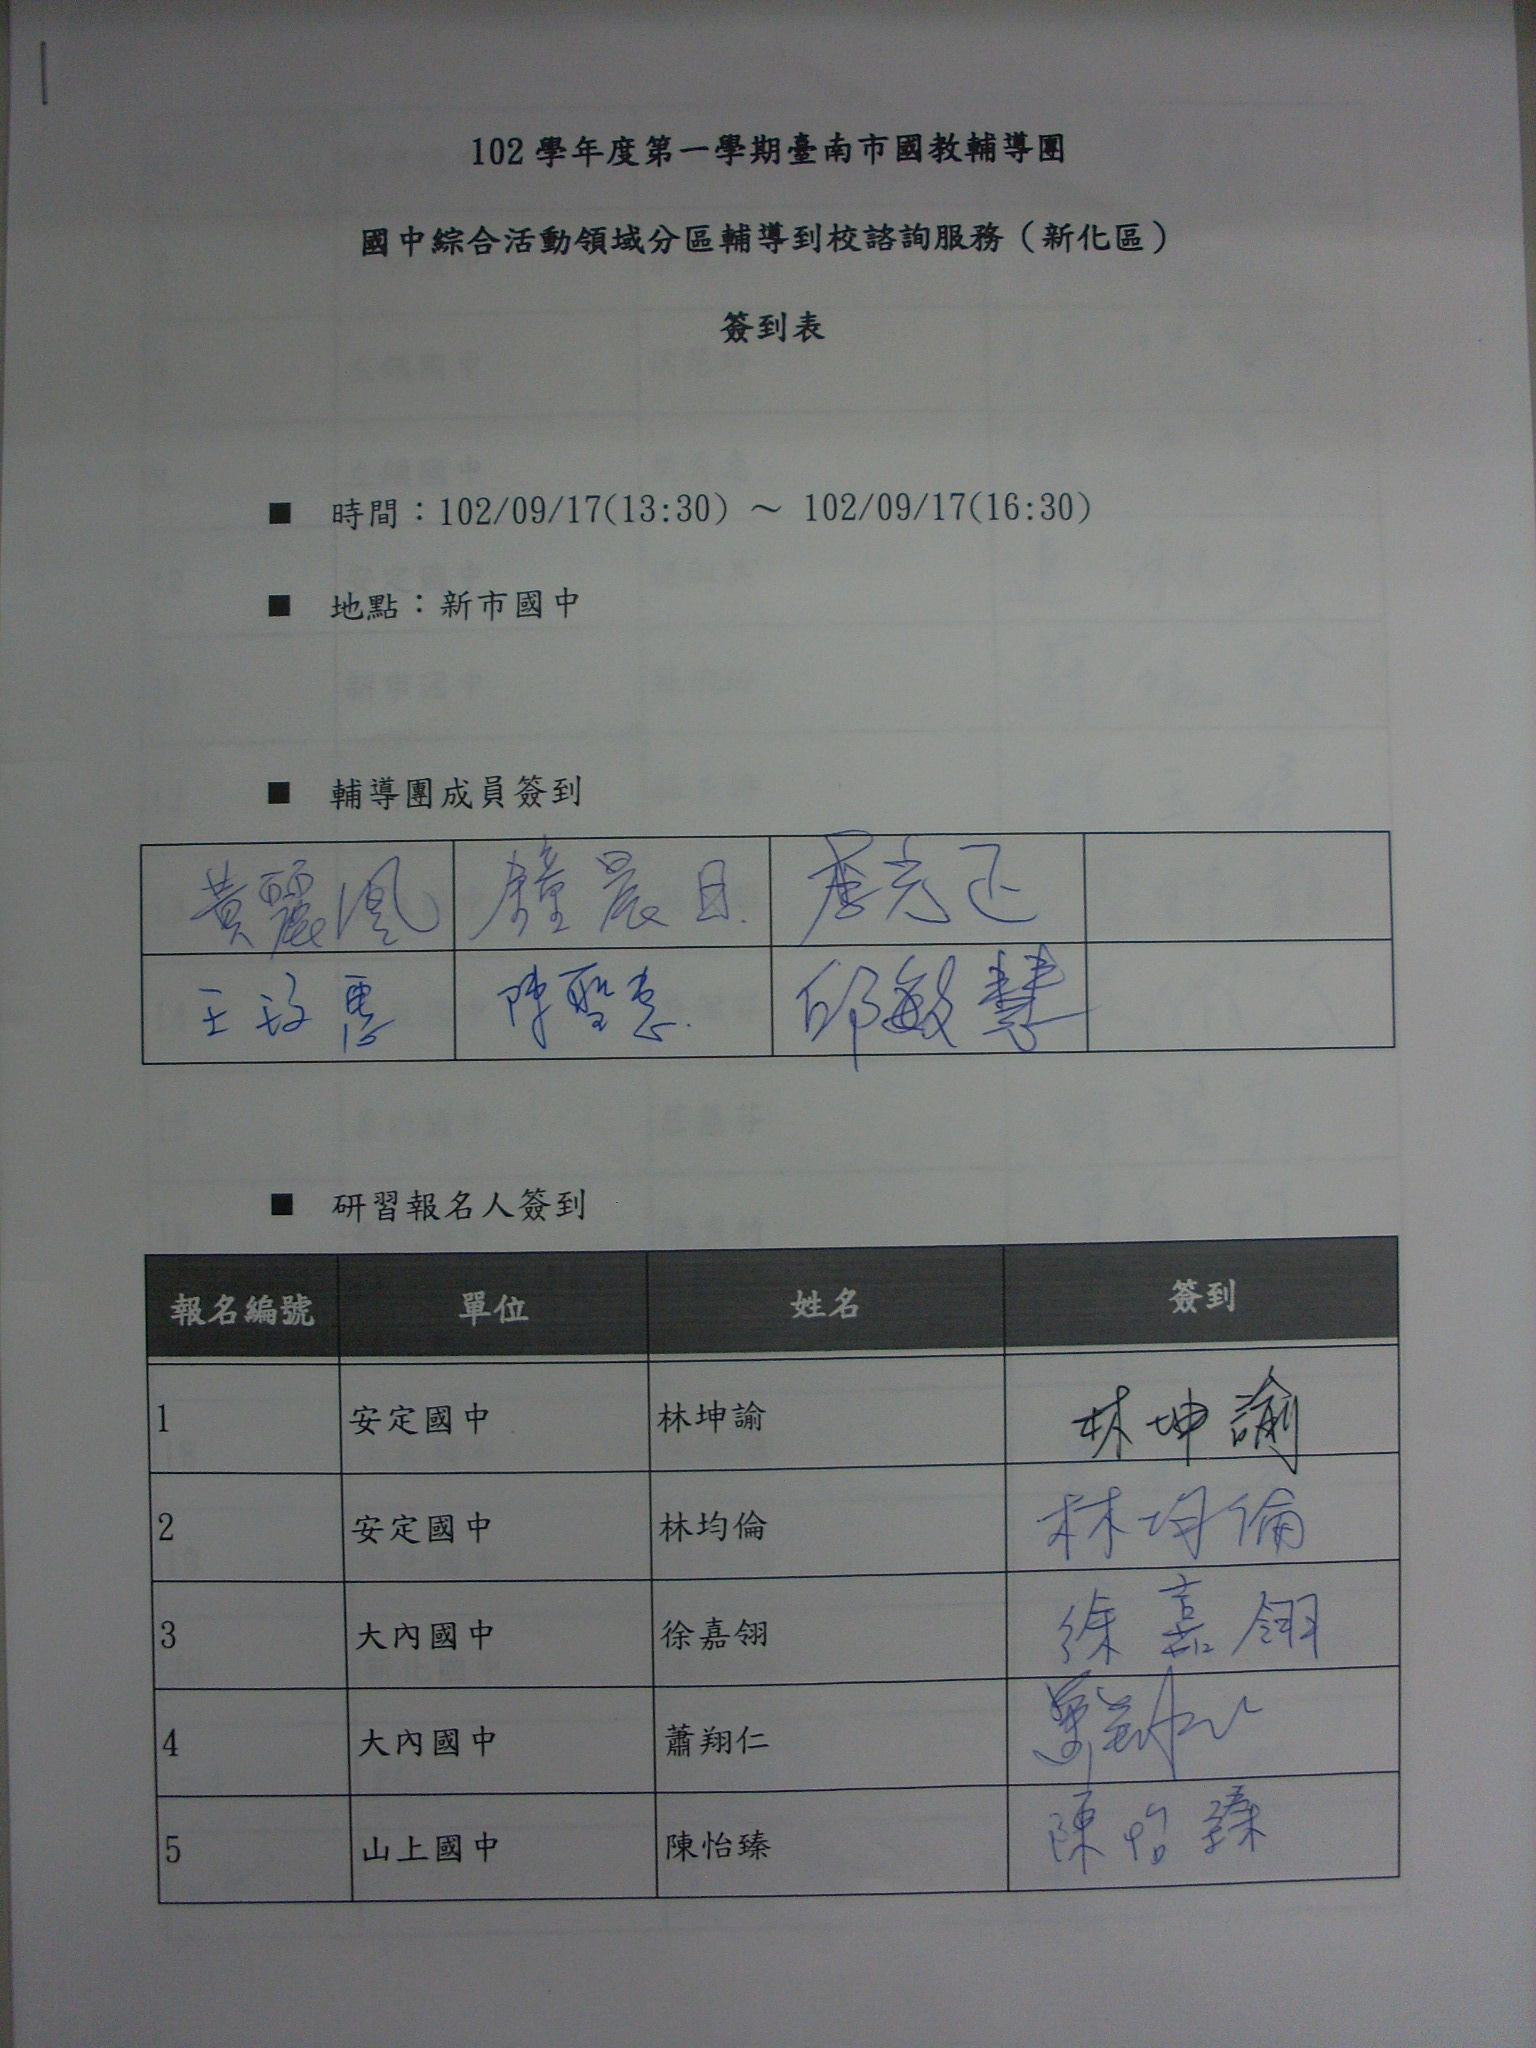 102 學年度第一學期臺南市國教輔導團
國中綜合活動領域分區輔導到校諮詢服務（新化區）
簽到表
■ 時間：102/09/17(13:30) ～ 102/09/17(16:30)
■ 地點：新市國中
■ 輔導團成員簽到
黃麗鳳 鍾晨日 唐光正
王玫惠 陳聖惠 邱敏慧
■ 研習報名人簽到
報名編號 單位 姓名 簽到
1 安定國中 林坤諭 林坤諭
2 安定國中 林均倫 林均倫
3 大內國中 徐嘉翎 徐嘉翎
4 大內國中 蕭翔仁
5 山上國中 陳怡臻 陳怡臻